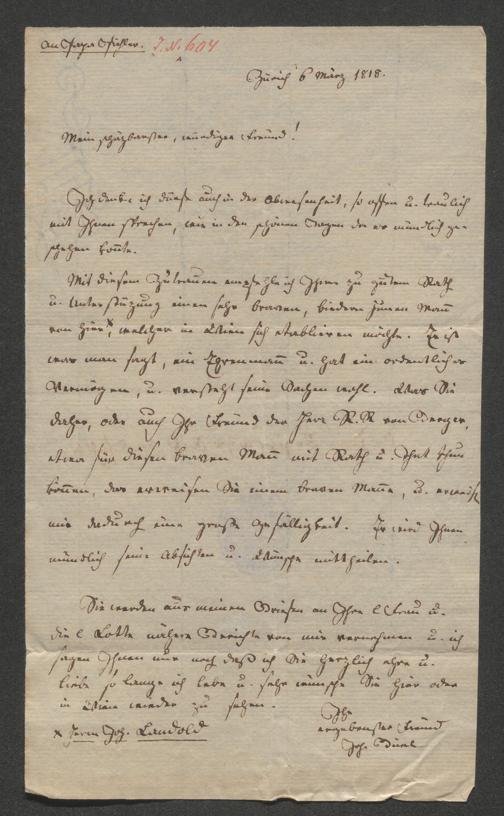 An Papa Pichler. J. N. 604
Zürich 6 März 1818.
Mein schäzbarster, würdiger Freund!
Ich denke ich dürfe auch in der Abwesenheit, so offen u. traulich
mit Ihnen sprechen, wie in den schönen Tagen da es mündlich ge-
schehen konnte.
Mit diesem Zutrauen empfehle ich Ihnen zu gutem Rath
u. Unterstüzung einen sehr braven, biedern jungen Mann
von hier x, welcher in Wien sich etablieren möchte. Er ist
was man sagt, ein Ehrenmann u. hat ein ordentliches
Vermögen, u. versteht seine Sachen wohl. Was Sie
daher, oder auch Ihr Freund der Herr R. R. von Berger,
etwa für diesen braven Mann mit Rath u. That thun
können, das erweisen Sie einem braven Manne, u. erweist
mir dadurch eine große Gefälligkeit. Er wird Ihnen
mündlich seine Absichten u. Wünsche mittheilen.
Sie werden aus meinen Briefen an Ihre l. Frau u.
die l. Lotte nähere Berichte von mir vernehmen u. ich
sagen Ihnen nur noch daß ich Sie herzlich ehre u.
liebe so lange ich lebe u. sehr wünsche Sie hier oder
in Wien wieder zu sehen.
Ihr
ergebenster Freund
Joh. Bürkl
x Herrn Joh. Landold